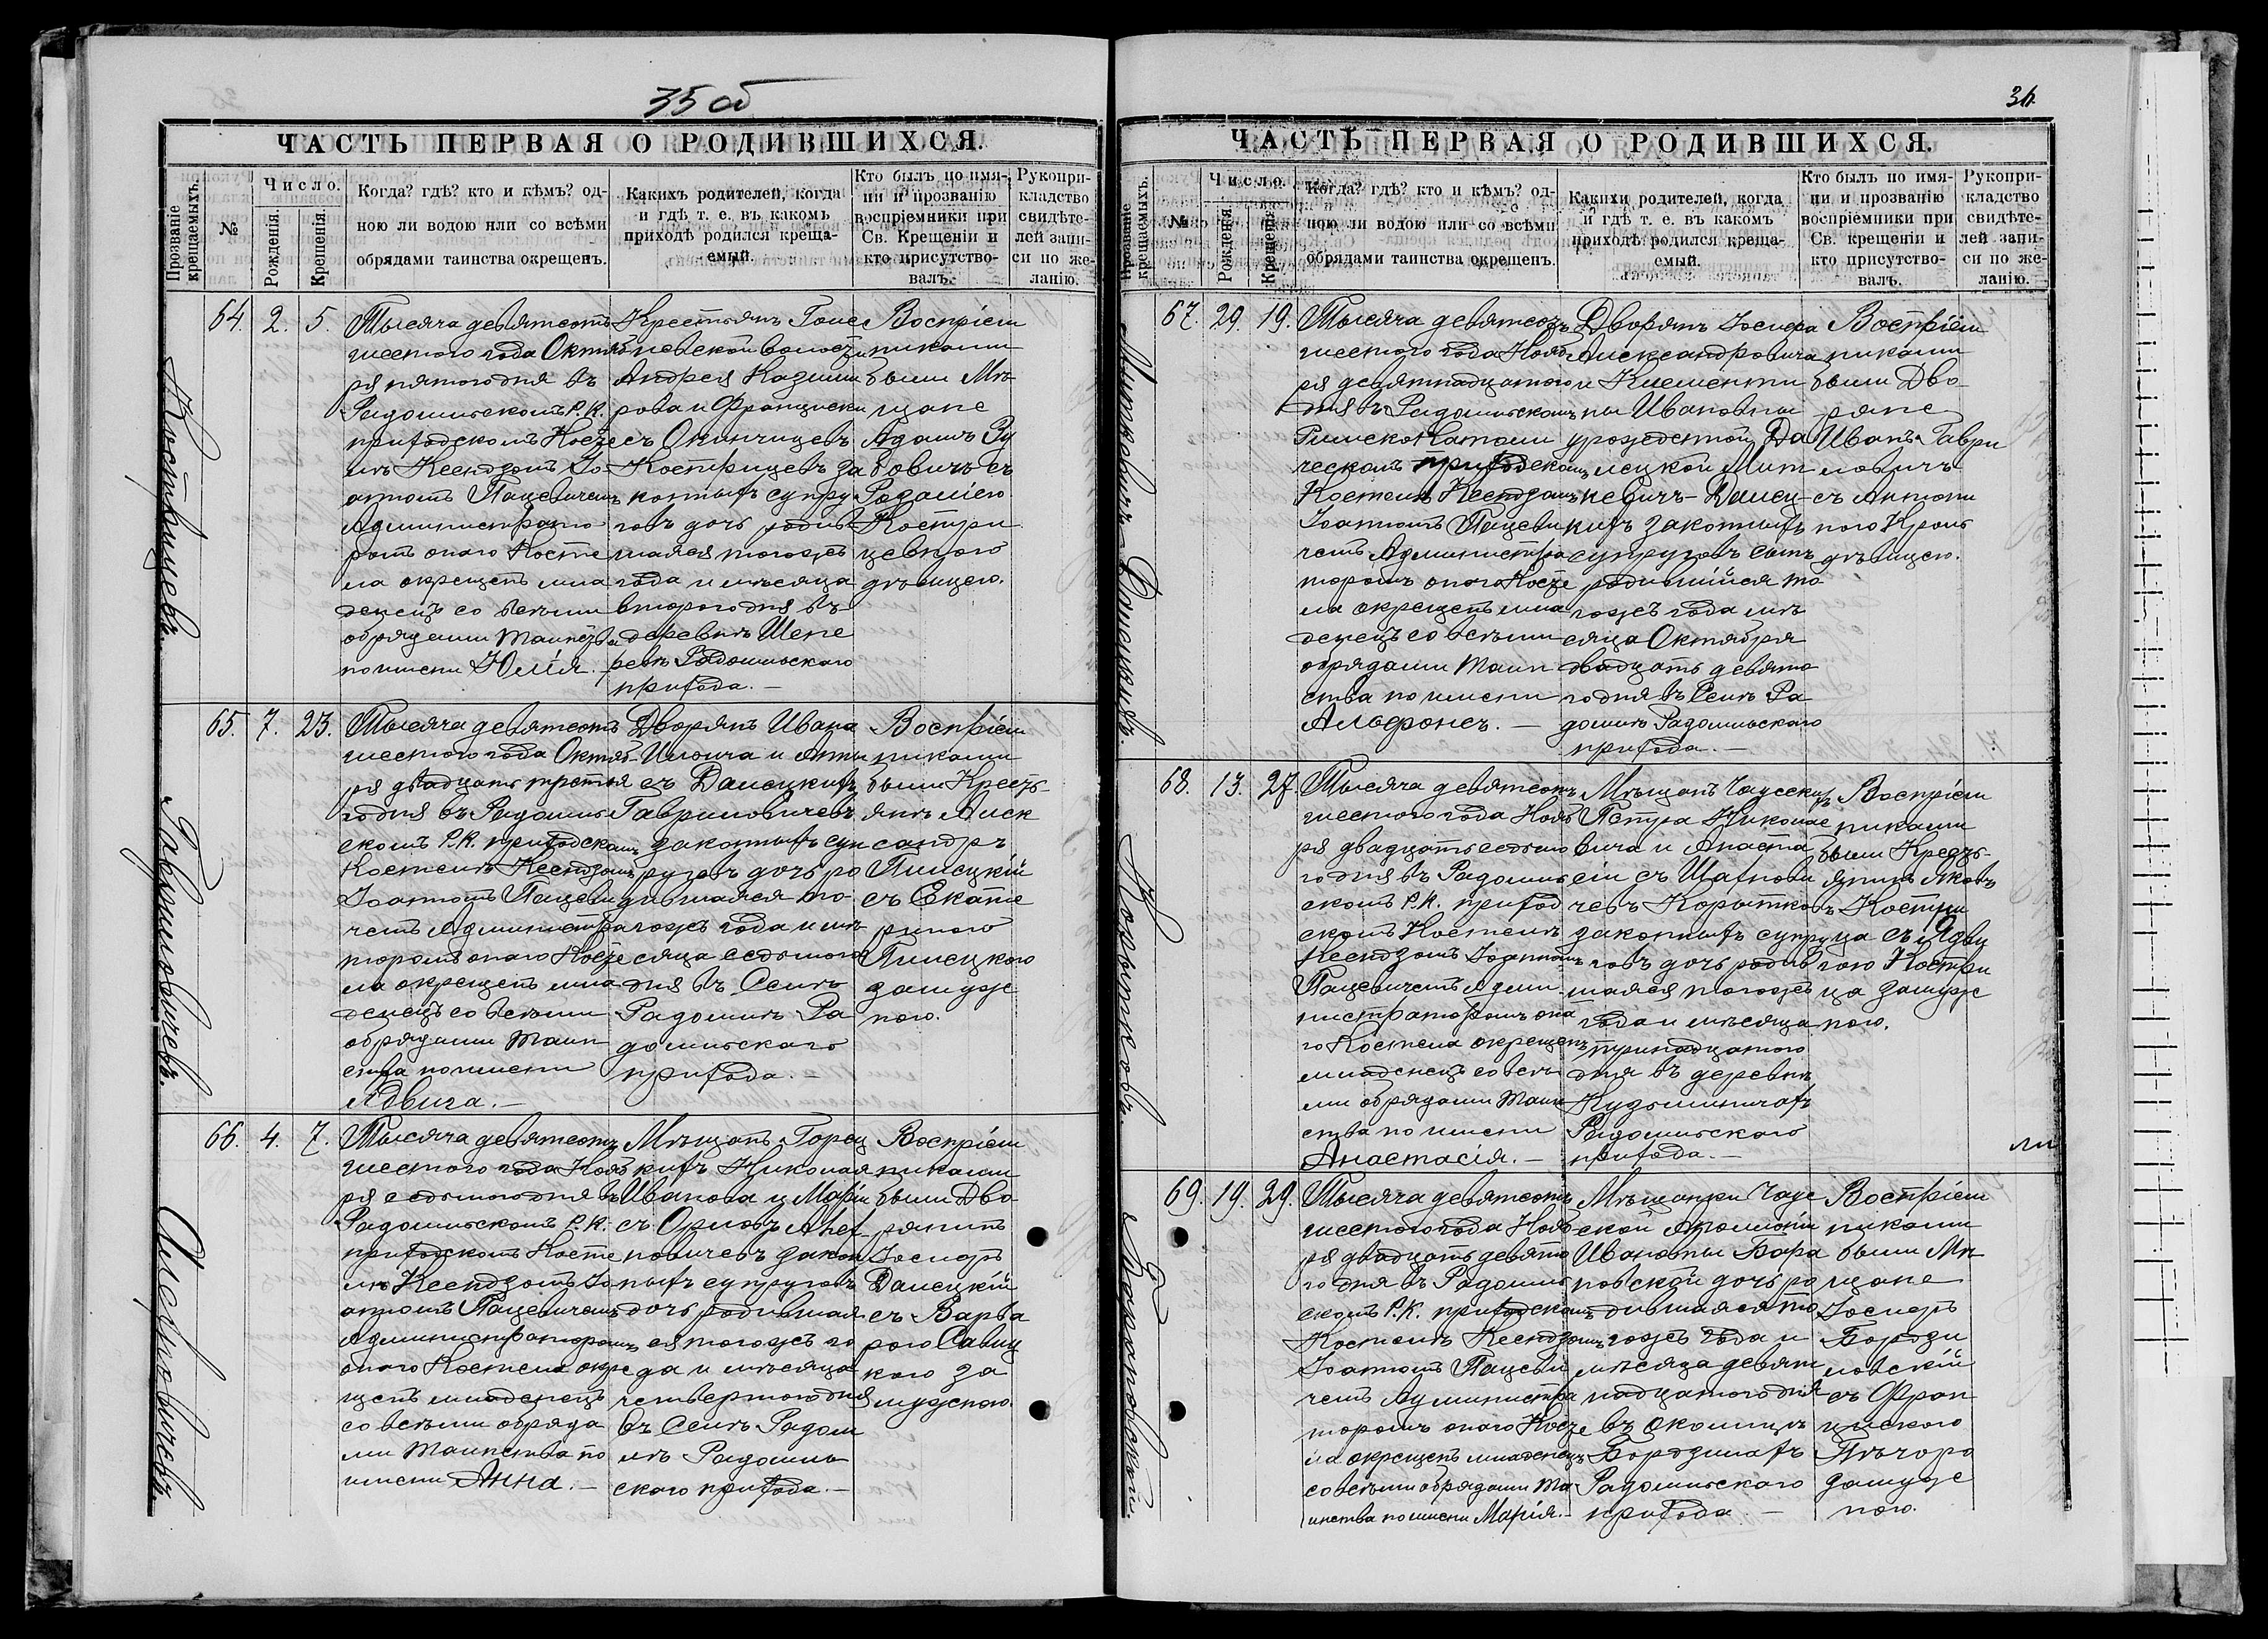 35 об
ЧАСТЬ ПЕРВАЯ О РОДИВШИХСЯ.
Прозваніе крещаемыхъ.
№
Число.
Рожденія.
Крещенія.
Когда? гдѣ? кто и кѣмъ? од-
ною ли водою или со всѣми
обрядами таинства окрещенъ.
Какихъ родителей, когда
и гдѣ т. е. въ какомъ
приходѣ родился креща-
емый.
Кто былъ по имя-
ни и прозванію
воспріемники при
Св. Крещеніи и
кто присутство-
валъ.
Рукопри-
кладство
свидѣте-
лей запи-
си по же-
ланію.
Кострицевъ.
64. 2. 5.
Тысяча девятсотъ
шестого года Октяб
ря пятого дня въ
Радомльскомъ Р. К.
приходскомъ Косте
лѣ Ксендзомъ Іо-
анномъ Пацевичемъ
Администрато
ромъ оного Косте
ла окрещенъ мла
денецъ со всѣми
обрядами Таинства
по имени Юлія.
Крестьянъ
волости
Андрея Казими
рова и Франциски
съ
Костицевъ за
конныхъ супру
говъ дочь родив
шаяся тогожъ
года и мѣсяца
второго дня въ
деревнѣ Шепе
ревѣ Радомльского
прихода. —
Воспріем
никами
были Мѣ
щане
Адамъ Зу
бовичъ съ
Розаліею
Костри
цевною
дѣвицею.
Гавриловичевъ.
65. 7. 23.
Тысяча девятсотъ
шестого года Октяб-
ря двадцать третья
го дня въ Радомль
скомъ Р. К. приходскомъ
Костелѣ Ксендзомъ
Іоанномъ Пацеви
чемъ Администра
торомъ оного Косте
ла окрещенъ мла
денецъ со всѣми
обрядами Таин
ства по имени
Ядвига. —
Дворянъ Ивана
Ильича и Анны
съ Далецкихъ
Гавриловичевъ
законныхъ суп
руговъ дочь ро
дившаяся то-
гожъ года и мѣ
сяца седьмого
дня въ Селѣ
Радомлѣ Ра
домльского
прихода. —
Воспріем
никами
были Кресть-
янѣ Алек
сандръ
Плисецкій
съ Екате
риною
Плисецкого
замуж
ною.
Олехновичевъ.
66. 4. 7.
Тысяча девятсотъ
шестого года Нояб
ря седьмого дня въ
Радомльскомъ Р. К.
приходскомъ Косте
лѣ Ксендзомъ Іо
анномъ Пацевичемъ
Администраторомъ
оного Костела окре
щенъ младенецъ
со всѣми обряда
ми Таинства по
имени Анна. —
Мѣщанъ Горец
кихъ Николая
Иванова и Маріи
съ Орловъ Алех-
новичевъ закон
ныхъ супруговъ
дочь родившая
ся тогожъ го
да и мѣсяца
четвертого дня
въ Селѣ Радом
лѣ Радомль
ского прихода. —
Воспріем
никами
были Дво
рянинъ
Іосифъ
Далецкій
съ Варва
рою
кого за
мужною.
36.
ЧАСТЬ ПЕРВАЯ О РОДИВШИХСЯ.
Прозваніе крещаемыхъ.
№
Число.
Рожденія.
Крещенія.
Когда? гдѣ? кто и кѣмъ? од-
ною ли водою или со всѣми
обрядами таинства окрещенъ.
Какихъ родителей, когда
и гдѣ т. е. въ какомъ
приходѣ родился креща-
емый.
Кто былъ по имя-
ни и прозванію
воспріемники при
Св. крещеніи и
кто присутство-
валъ.
Рукопри-
кладство
свидѣте-
лей запи-
си по же-
ланію.
67. 29. 19.
Тысяча девятсотъ
шестого года Нояб
ря девятнадцатого
дня въ Радомльскомъ
Римско Католи
ческомъ приходскомъ
Костелѣ Ксендзомъ
Іоанномъ Пацеви
чемъ Администра
торомъ оного Косте
ла окрещенъ мла
денецъ со всѣми
обрядами Таин
ства по имени
Альфонсъ. —
Дворянъ Іосифа
Александровича
и Клементи
ны Ивановны
урожденной Да
лецкой
Далец-
кихъ законныхъ
супруговъ сынъ
родившійся то
гожъ года мѣ
сяца Октября
двадцать девято
го дня въ Селѣ Ра
домлѣ Радомльского
прихода. —
Воспріем
никами
были Дво
ряне
Иванъ Гаври
ловичъ
съ Антони
ною
дѣвицею.
Корытковъ.
68. 13. 27.
Тысяча девятсотъ
шестого года Нояб
ря двадцать седьмо
го дня въ Радомль
скомъ Р. К. приход
скомъ Костелѣ
Ксендзомъ Іоанномъ
Пацевичемъ Адми
нистраторомъ оно
го Костела окрещенъ
младенецъ со всѣ
ми обрядами Таин
ства по имени
Анастасія. —
Мѣщанъ Чаусскихъ
Петра Николае
вича и Анаста
сіи съ
чевъ Корытковъ
законныхъ супру
говъ дочь родив
шаяся тогожъ
года и мѣсяца
тринадцатого
дня въ деревнѣ
Кузьминичахъ
Радомльского
прихода. —
Воспріем
никами
были Кресть-
янинъ Яковъ
Костри
ца съ Ядви
гою Костри
ца замуж
ною.
Барановской.
69. 19. 29.
Тысяча девятсотъ
шестого года Нояб
ря двадцать девято
го дня въ Радомль
скомъ Р. К. приходскомъ
Костелѣ Ксендзомъ
Іоанномъ Пацеви
чемъ Администра
торомъ оного Косте
ла окрещенъ младенецъ
со всѣми обрядами Та
инства по имени Марія. —
Мѣщанки Чаус
ской Аполлоніи
Ивановны Бара
новской дочь ро
дившаяся то
гожъ года и
мѣсяца девят
надцатого дня
въ околицѣ
Бородзилахъ
Радомльского
прихода. —
Воспріем
никами
были Мѣ
щане
Іосифъ
Бородзи
ловскій
съ Фран
цискою
замуж
ною.